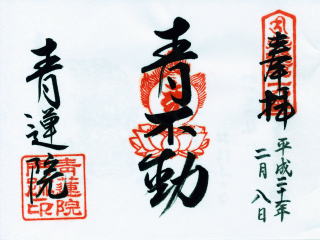 奉拝
平成二十年
二月八日
青不動
青蓮院
青蓮院
門跡印